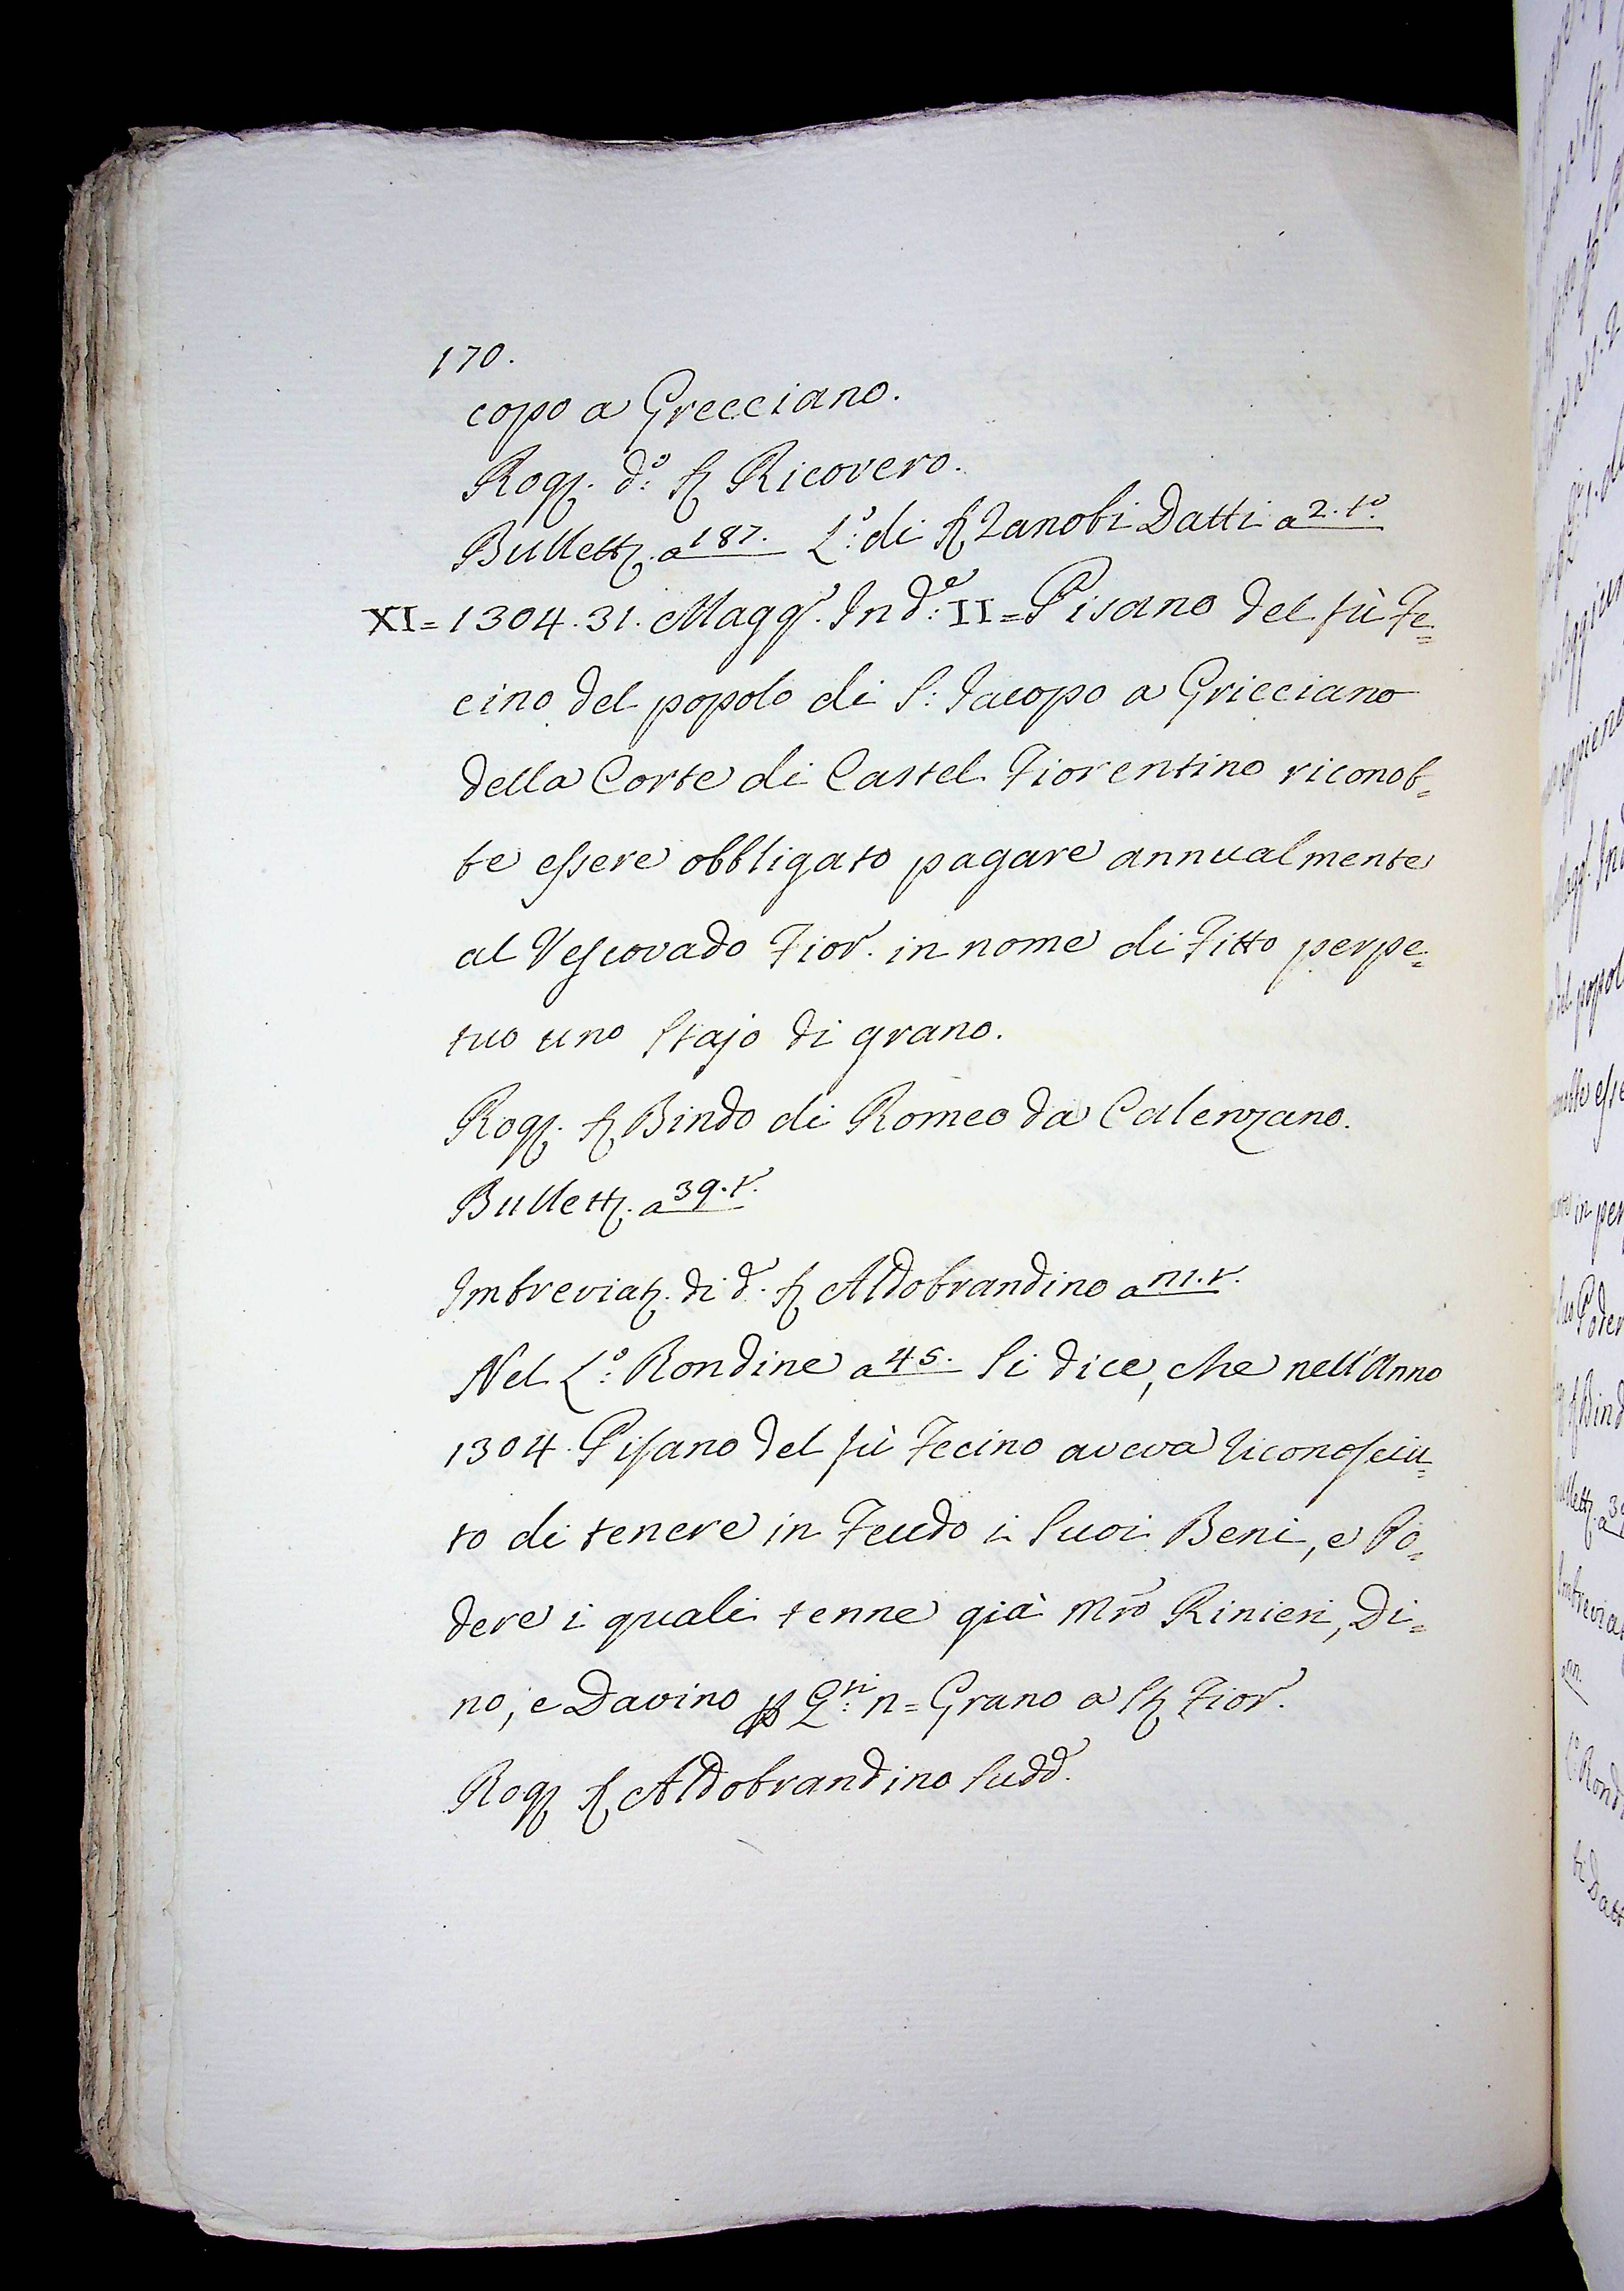 170.
copo a Grecciano.
Rogg. d:o S. Ricovero.
Bullett. a 187. L:o di S. Zanobi Datti a 2. to.
XI = 1304. 31. Magg. Ind:e II = Pisano del fù Fe=
cino del popolo di S: Iacopo a Gricciano
della Corte di Castel Fiorentino riconob=
be essere obbligato pagare annualmente
al Vescovado Fior. in nome di Fitto perpe=
tuo uno Stajo di grano.
Rog. S. Bindo di Romeo da Calenzano.
Bullett. a 39. t.
Imbreviaz. di d. S. Aldobrandino a m. t.
Nel L:o Rondine a 45. Si dice, che nell'Anno
1304. Pisano del fù Fecino aveva riconosciu=
to di tenere in Feudo i Suoi Beni, e Po=
dere i quali tenne già Mro Rinieri, Di=
no, e Davino p Q:ri n= Grano a St. Fior.
Rog. S. Aldobrandino Sudd.